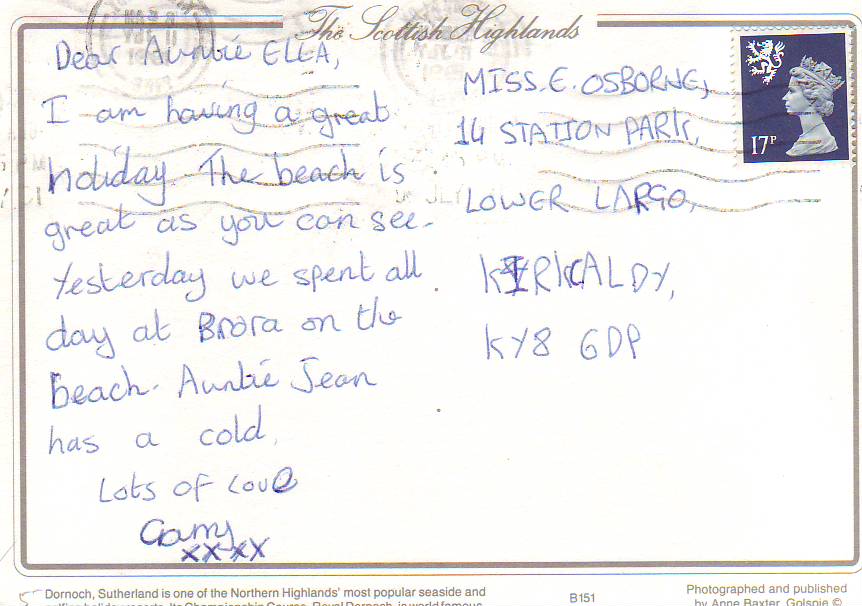 The Scottish Highlands
Dear Auntie ELLA,
I am having a great
holiday. The beach is
great as you can see.
Yesterday we spent all
day at Brora on the
beach. Auntie Jean
has a cold.
Lots of love
Garry
xx xx
MISS. E. OSBORNE,
14 STATION PARK,
LOWER LARGO,
KIRKCALDY,
KY8 6DP
17P
Dornoch, Sutherland is one of the Northern Highlands' most popular seaside and
golfing holiday resorts. Its Championship Course, Royal Dornoch, is world famous
B151
Photographed and published
by Anne Baxter, Golspie ©